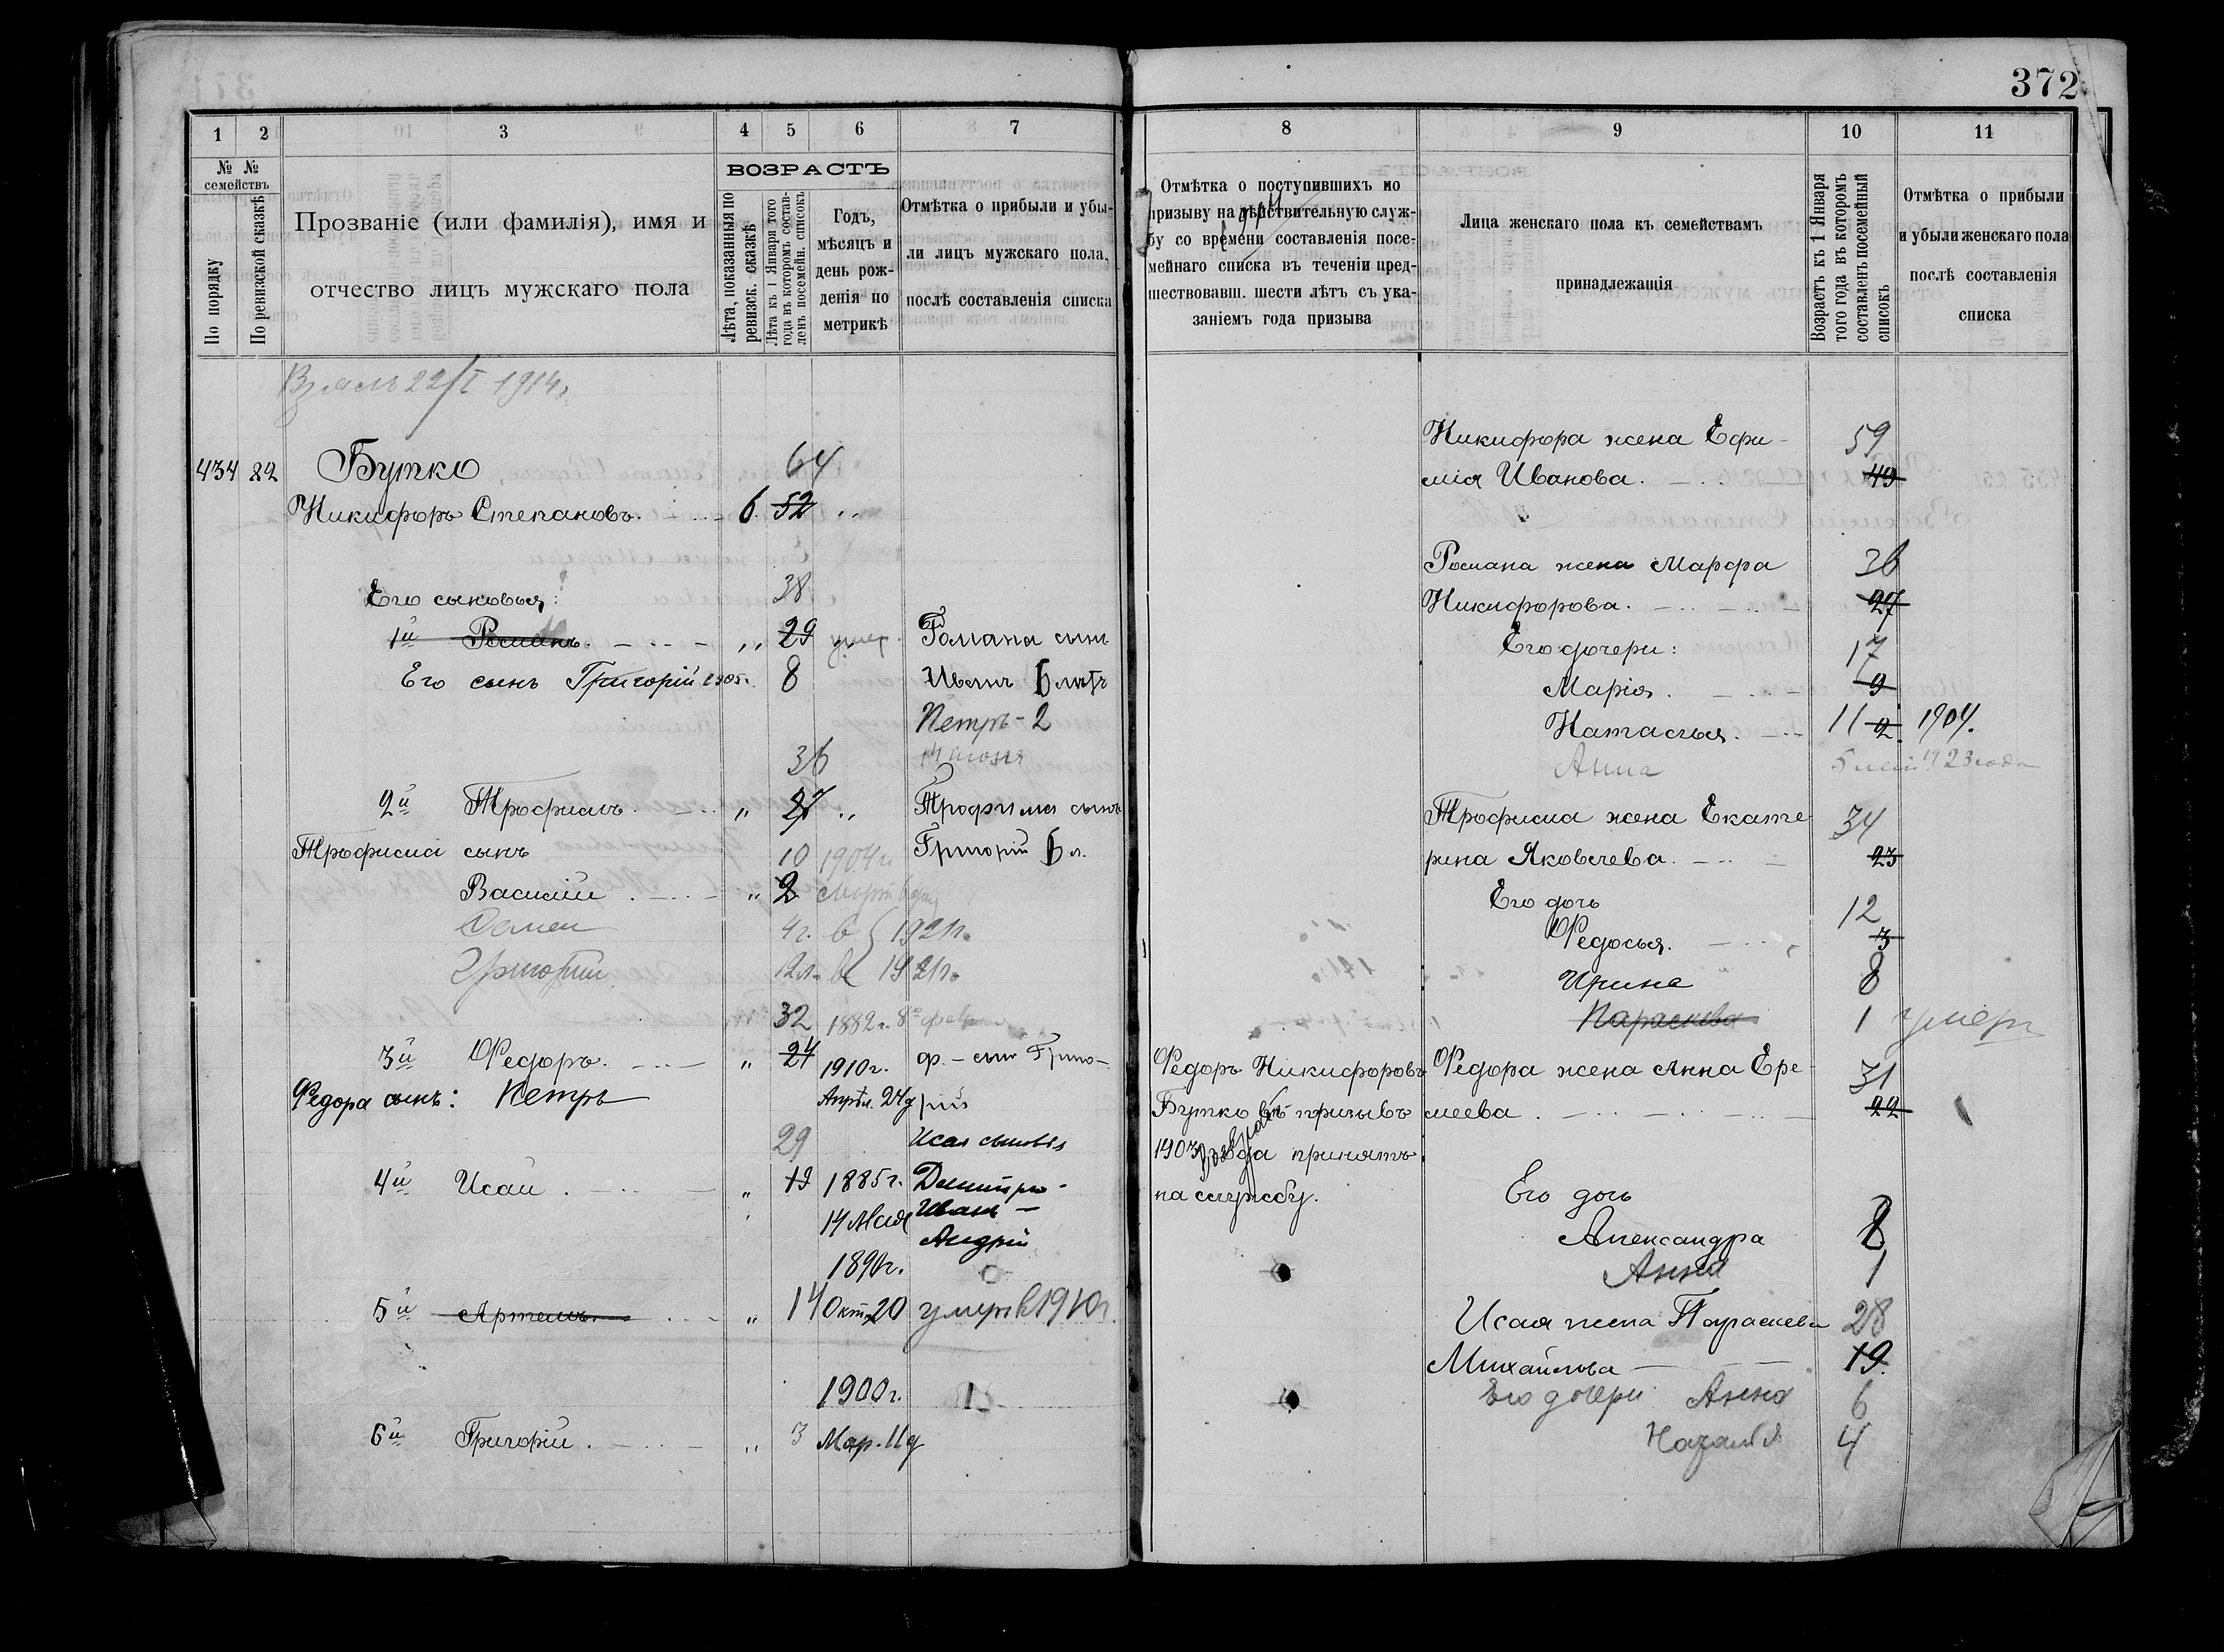 372
1 2 3 4 5 6 7
№ № семействъ
По порядку
По ревизской сказкѣ
Прозваніе (или фамилія), имя и
отчество лицъ мужскаго пола
ВОЗРАСТЪ
Лѣта, показанныя по
ревизск. сказкѣ
Лѣта къ 1 Января того
года въ которомъ состав-
ленъ посемейн. списокъ
Годъ,
мѣсяцъ и
день рож-
денія по
метрикѣ
Отмѣтка о прибыли и убы-
ли лицъ мужскаго пола,
послѣ составленія списка
22/I 1914г.
64
434 82 Бутко
Никифоръ Степановъ. 6. 52 "
38
Его сыновья:
1й Романъ. " 29 умер. Романа сынъ
Его сынъ Григорій 1905г. 8 Иванъ 6 лѣтъ
Петръ - 2
36
2й Трофимъ. " 27 " Трофима сынъ
Трофима сынъ 10 1904г. Григорій 6 л.
Василій. " 2
Семен 4г. в 1921г.
Григорій 12л. в 1921г.
32 1882г. 8го фев
3й Федоръ. " 24 1910г. Ф. - сын Григо-
Федора сынъ: Петръ Апрѣл. 24д рій
29 Исая сыновья
4й Исай. " 19 1885г. Дмитрій -
14 Мая Иванъ -
Андрій
1890г.
5й Артемъ. " 14 Окт. 20 умеръ в 1910г.
1900г.
6й Григорій. " 3 Мар. 11д
8 9 10 11
Отмѣтка о поступившихъ по
призыву на дѣйствительную служ-
бу со времени составленія посе-
мейнаго списка въ теченіи пред-
шествовавш. шести лѣтъ съ ука-
заніемъ года призыва
Лица женскаго пола къ семействамъ
принадлежащія
Возрастъ къ 1 Января
того года въ которомъ
составленъ посемейный
списокъ
Отмѣтка о прибыли
и убыли женскаго пола
послѣ составленія
списка
Никифора жена Ефи- 59
мія Иванова. 49
Романа жена Марфа 36
Никифорова. 27
Его дочери: 17
Марія. 9
Наталья. 11 2 1904.
Анна 1923 года
Трофима жена Екате 34
рина Яковлева. 23
Его дочь 12
Федосья. 3
Ирина 8
Параскева 1 умерл
Федоръ Никифоровъ Федора жена Анна Ере- 31
Бутко въ призывъ меева. 22
1903 года принятъ
на службу. Его дочь
Александра 8
Анна 1
Исая жена Параскева 28
Михайлова 19
Его дочери Анна 6
Наталія 4